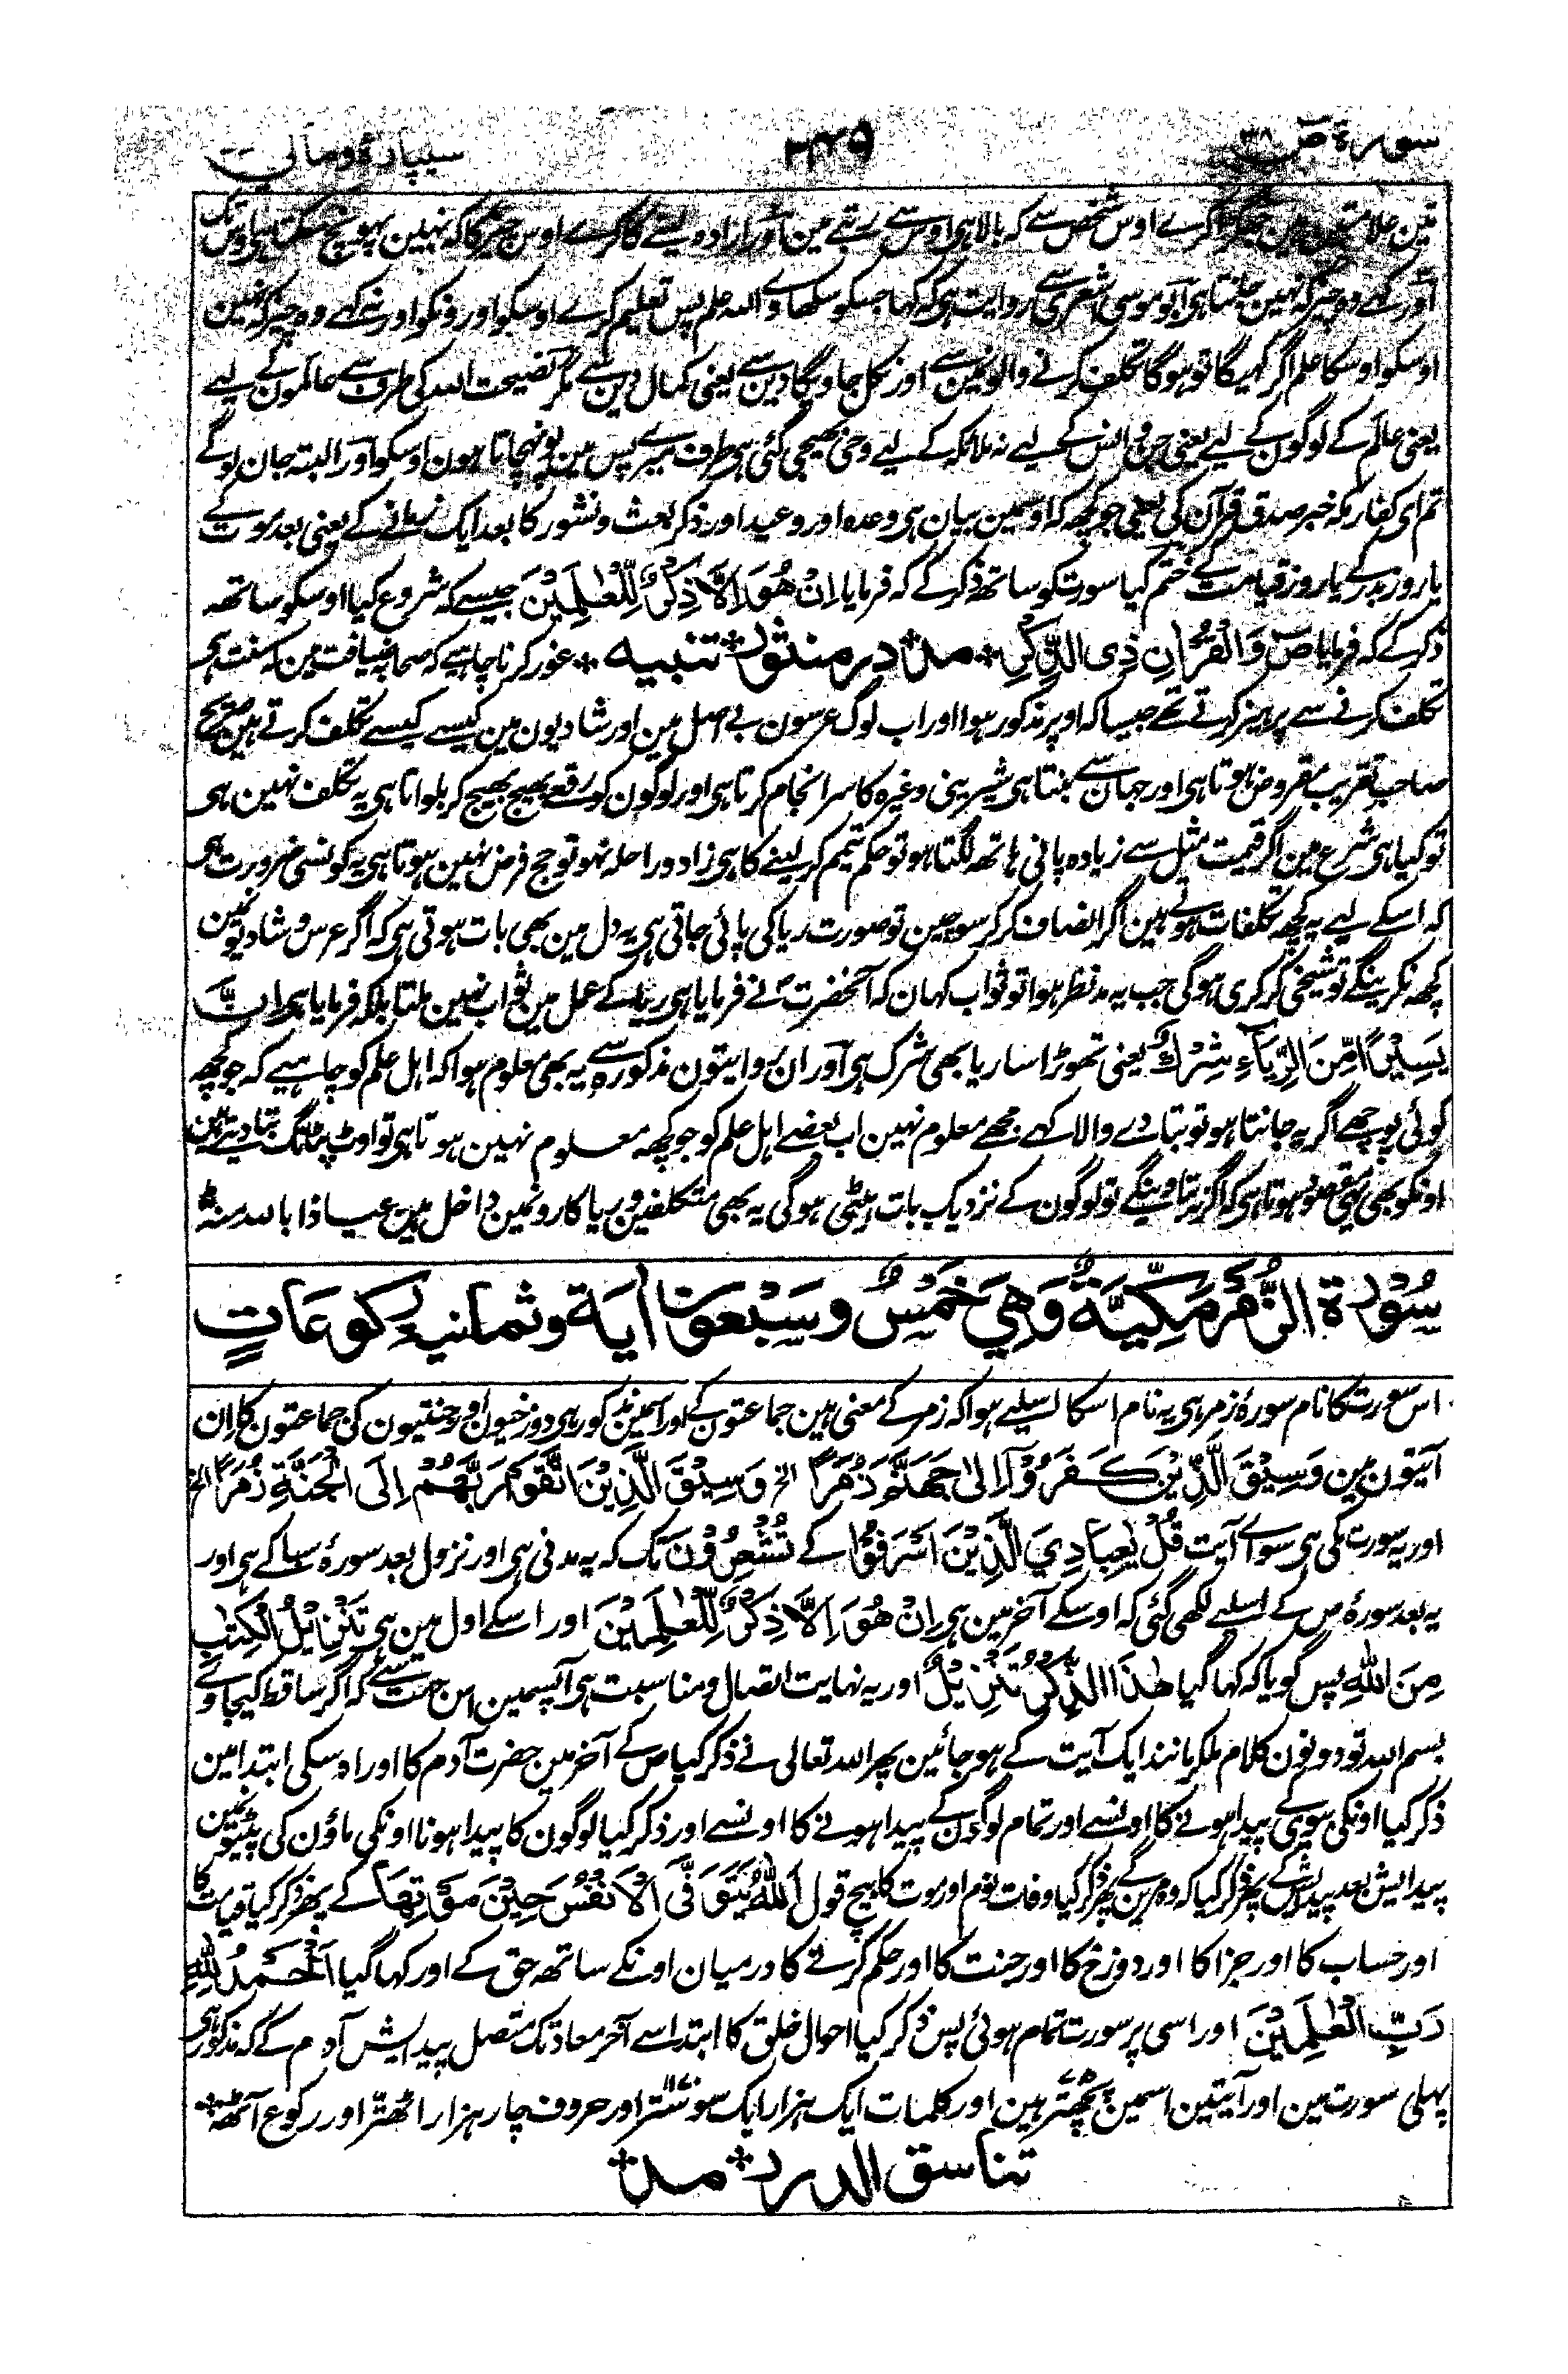 سورۃ ص ۳۸
۲۳۵
سیپارۂ ومالی
تین علامتین ہین جھگڑا کرے اوس شخص سے کہ بالا ہی اوس سے رتبے مین اور ارادہ لینے کا کرے اوس چیز کا کہ نہین پہونچ سکتا ہی اوس تک
اور کہے وہ چیز کہ نہین جانتا ہی ابو موسی اشعری سے روایت ہی کہ کہا جسکو سکھاوے اللہ علم پس تعلیم کرے اوسکو اورونکو اور نہ کہے وہ چیز کہ نہین
اوسکو اوسکا علم اگر کہیگا تو ہوگا تکلف کرنے والونمین سے اور نکل جاویگا دین سے یعنی کمال دین سے مگر نصیحت اللہ کی طرف سے عالمون کے لیے
یعنی عالم کے لوگون کے لیے یعنی جن و انس کے لیے نہ ملائکہ کے لیے وحی بھیجی گئی ہی طرف میرے پس مین پونہچاتا ہون اوسکو اور البتہ جان لوگے
تم ای کفار مکہ خبر صدق قرآن کی یعنی جو کچھ کہ اوسمین بیان ہی وعدہ اور وعید اور ذکر بعث و نشور کا بعد ایک زمانے کے یعنی بعد موت کے
یا روز بدر کے یا روز قیامت کے ختم کیا سورت کو ساتھ ذکر کے کہ فرمایا اِنْ هُوَ اِلَّا ذِكْرٌ لِّلْعٰلَمِيْنَ جیسے کہ شروع کیا اوسکو ساتھ
ذکر کے کہ فرمایا صٓ وَالْقُرْاٰنِ ذِی الذِّكْرِ * مد * درمنثور * تنبیہ * غور کرنا چاہیے کہ صحابہ ضیافت مین کہ سنت ہی
تکلف کرنے سے پرہیز کرتے تھے جیسا کہ اوپر مذکور ہوا اور اب لوگ عرسون بے اصل مین اور شادیون مین کیسے کیسے تکلف کرتے ہین صریح
صاحب تقریب مقروض ہوتا ہی اور جہان سے بنتا ہی شیرینی وغیرہ کا سرانجام کرتا ہی اور لوگون کو رقعے بھیج بھیج کر بلواتا ہی یہ تکلف نہین ہی
تو کیا ہی شرع مین اگر قیمت مثل سے زیادہ پانی ہاتھ لگتا ہو تو حکم تیمم کر لینے کا ہی زاد و راحلہ نہو تو حج فرض نہین ہوتا ہی یہ کونسی ضرورت ہی
کہ اسکے لیے یہ کچھ تکلفات ہوتے ہین اگر انصاف کر کر سوچین تو صورت ریا کی پائی جاتی ہی یہ دل مین بھی بات ہوتی ہی کہ اگر عرس و شادیونمین
کچھ نکرینگے تو شیخی کرکری ہوگی جب یہ مد نظر ہوا تو ثواب کہان کہ آنحضرتؐ نے فرمایا ہی ریا کے عمل مین ثواب نہین ملتا بلکہ فرمایا ہی اِنَّ
يَسِيْرًا مِّنَ الرِّيَآءِ شِرْكٌ یعنی تھوڑا سا ریا بھی شرک ہی اور ان روایتون مذکورہ سے یہ بھی معلوم ہوا کہ اہل علم کو چاہیے کہ جو کچھ
کوئی پوچھے اگر یہ جانتا ہو تو بتادے والا کہے مجھے معلوم نہین اب بعضے اہل علم کو جو کچھ معلوم نہین ہوتا ہی تو اوٹ پٹانگ بتا دیتے ہین
اونکو بھی یہی مقصود ہوتا ہی کہ اگر نہ بتاوینگے تو لوگون کے نزدیک بات ہیٹی ہوگی یہ بھی متکلفین و ریاکارونمین داخل ہین عیاذا باللہ منہ
سُوْرَةُ الزُّمَرِ مَكِّيَّةٌ وَهِيَ خَمْسٌ وسَبْعُوْنَ اٰيَةً وثمانيه ركوعَاتٍ
اس سورت کا نام سورۂ زمر ہی یہ نام اسکا اسلیے ہوا کہ زمر کے معنی ہین جماعتون کے اور اسمین مذکور ہی دوزخیون اور جنتیون کی جماعتون کا اِن
آیتون مین وَسِيْقَ الَّذِيْنَ كَفَرُوْٓا اِلٰى جَهَنَّمَ زُمَرًا الخ وَسِيْقَ الَّذِيْنَ اتَّقَوْا رَبَّهُمْ اِلَى الْجَنَّةِ زُمَرًا الخ
اور یہ سورت مکی ہی سوائے آیت قُلْ يٰعِبَادِيَ الَّذِيْنَ اَسْرَفُوْا کے تُنْصَرُوْنَ تک کہ یہ مدنی ہی اور نزول بعد سورۂ سبا کے ہی اور
یہ بعد سورۂ ص کے اسلیے لکھی گئی کہ اوسکے آخر مین ہی اِنْ هُوَ اِلَّا ذِكْرٌ لِّلْعٰلَمِيْنَ اور اسکے اول مین ہی تَنْزِيْلُ الْكِتٰبِ
مِنَ اللّٰهِ پس گویا کہ کہا گیا هٰذَا الذِّكْرُ تَنْزِيْلٌ اور یہ نہایت اتصال و مناسبت ہی آپسمین اس جہت سے کہ اگر ساقط کیجاوے
بسم اللہ تو دونون کلام ملکر مانند ایک آیت کے ہو جائین پھر اللہ تعالی نے ذکر کیا ص کے آخر مین حضرت آدم کا اور اوسکی ابتدا مین
ذکر کیا اونکی بیوی کے پیدا ہونے کا اونسے اور تمام لوگون کے پیدا ہونے کا اونسے اور ذکر کیا لوگون کا پیدا ہونا اونکی ماؤن کی پیٹونمین
پیدایش بعد پیدایش کے پھر ذکر کیا کہ وہ مرین گے پھر ذکر کیا وفات نوم اور موت کا بیچ قول اَللّٰهُ يَتَوَفَّى الْاَنْفُسَ حِيْنَ مَوْتِهَا کے پھر ذکر کیا قیامت کا
اور حساب کا اور جزا کا اور دوزخ کا اور جنت کا اور حکم کرنے کا درمیان اونکے ساتھ حق کے اور کہا گیا اَلْحَمْدُ لِلّٰهِ
رَبِّ الْعٰلَمِيْنَ اور اسی پر سورت تمام ہوئی پس ذکر کیا احوال خلق کا ابتدا سے آخر معاد تک متصل پیدایش آدم کے کہ مذکور ہی
پہلی سورت مین اور آیتین اسمین پچھتر ہین اور کلمات ایک ہزار ایک سو ستر اور حروف چار ہزار اٹھتر اور رکوع آٹھ *
تناسق الدرر * مد *